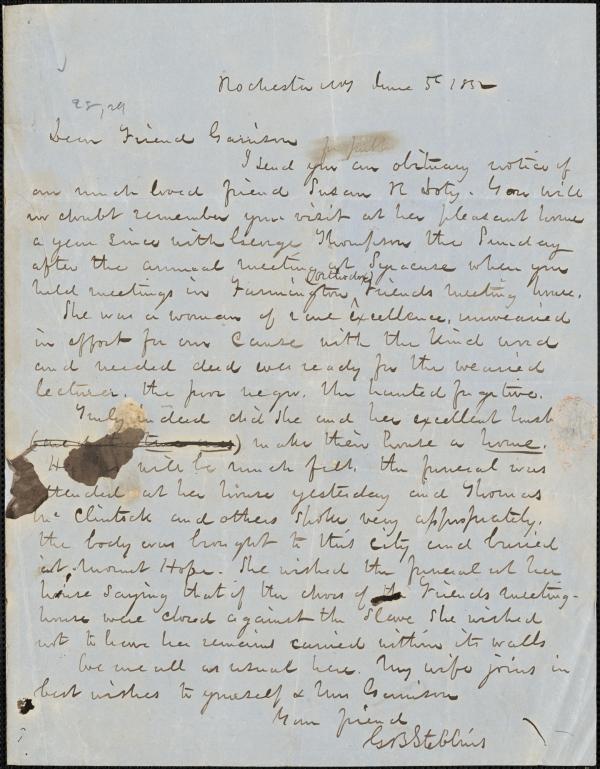 Rochester NY June 5th 1852
28, 29
Dear Friend Garrison
I send you an obituary notice of
our much loved friend Susan R Doty. You will
no doubt remember your visit at her pleasant home
a year since with George Thompson the Sunday
after the annual meeting at Syracuse when you
(orthodox)
held meetings in Farmington Friends meeting house.
She was a woman of rare excellence, unwearied
in effort for our cause with the kind word
and needed deed was ready for the wearied
lecturer, the poor negro, the hunted fugitive.
Truly indeed did she and her excellent husb
make their house a home.
will be much felt. The funeral was
attended at her house yesterday and Thomas
Mc Clintock and others spoke very appropriately.
the body was brought to this city and buried
at Mount Hope. She wished the funeral at her
house saying that if the doors of Friends meeting-
house were closed against the slave she wished
not to have her remains carried within its walls
We are all as usual here. My wife joins in
best wishes to yourself & Mrs Garrison
Your friend
G B Stebbins